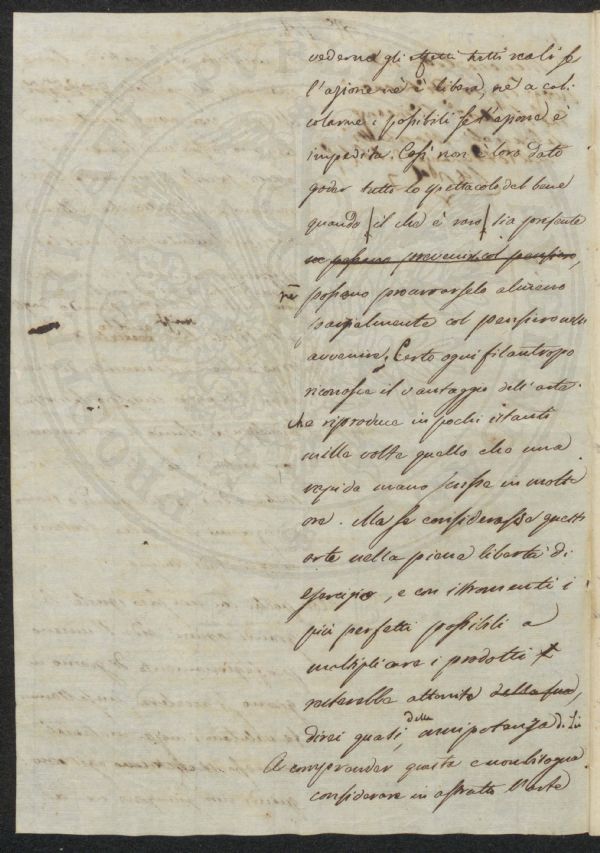 vederne gli effetti tutti reali se
l'azione nè è libera, nè a cal-
colarne i possibili se l'azione è
impedita. Così non è loro dato
goder tutto lo spettacolo del bene
quando (il che è raro) sia presente
ne possono prevenir col pensiero,
nè possono procurarselo almeno
col pensiero nell'
avvenire. Certo ogni filantropo
riconosce il vantaggio dell'arte
che riproduce in pochi istanti
mille volte quello che una
rapida mano scrisse in molte
ore. Ma se considerasse quest'
arte nella piena libertà di
esercizio, e con istromenti i
più perfetti possibili a
moltiplicare i prodotti
resterebbe attonito della sua,
direi quasi, della onnipotenza di lei
A comprender questa e non bisogna
considerare in astratto l'arte